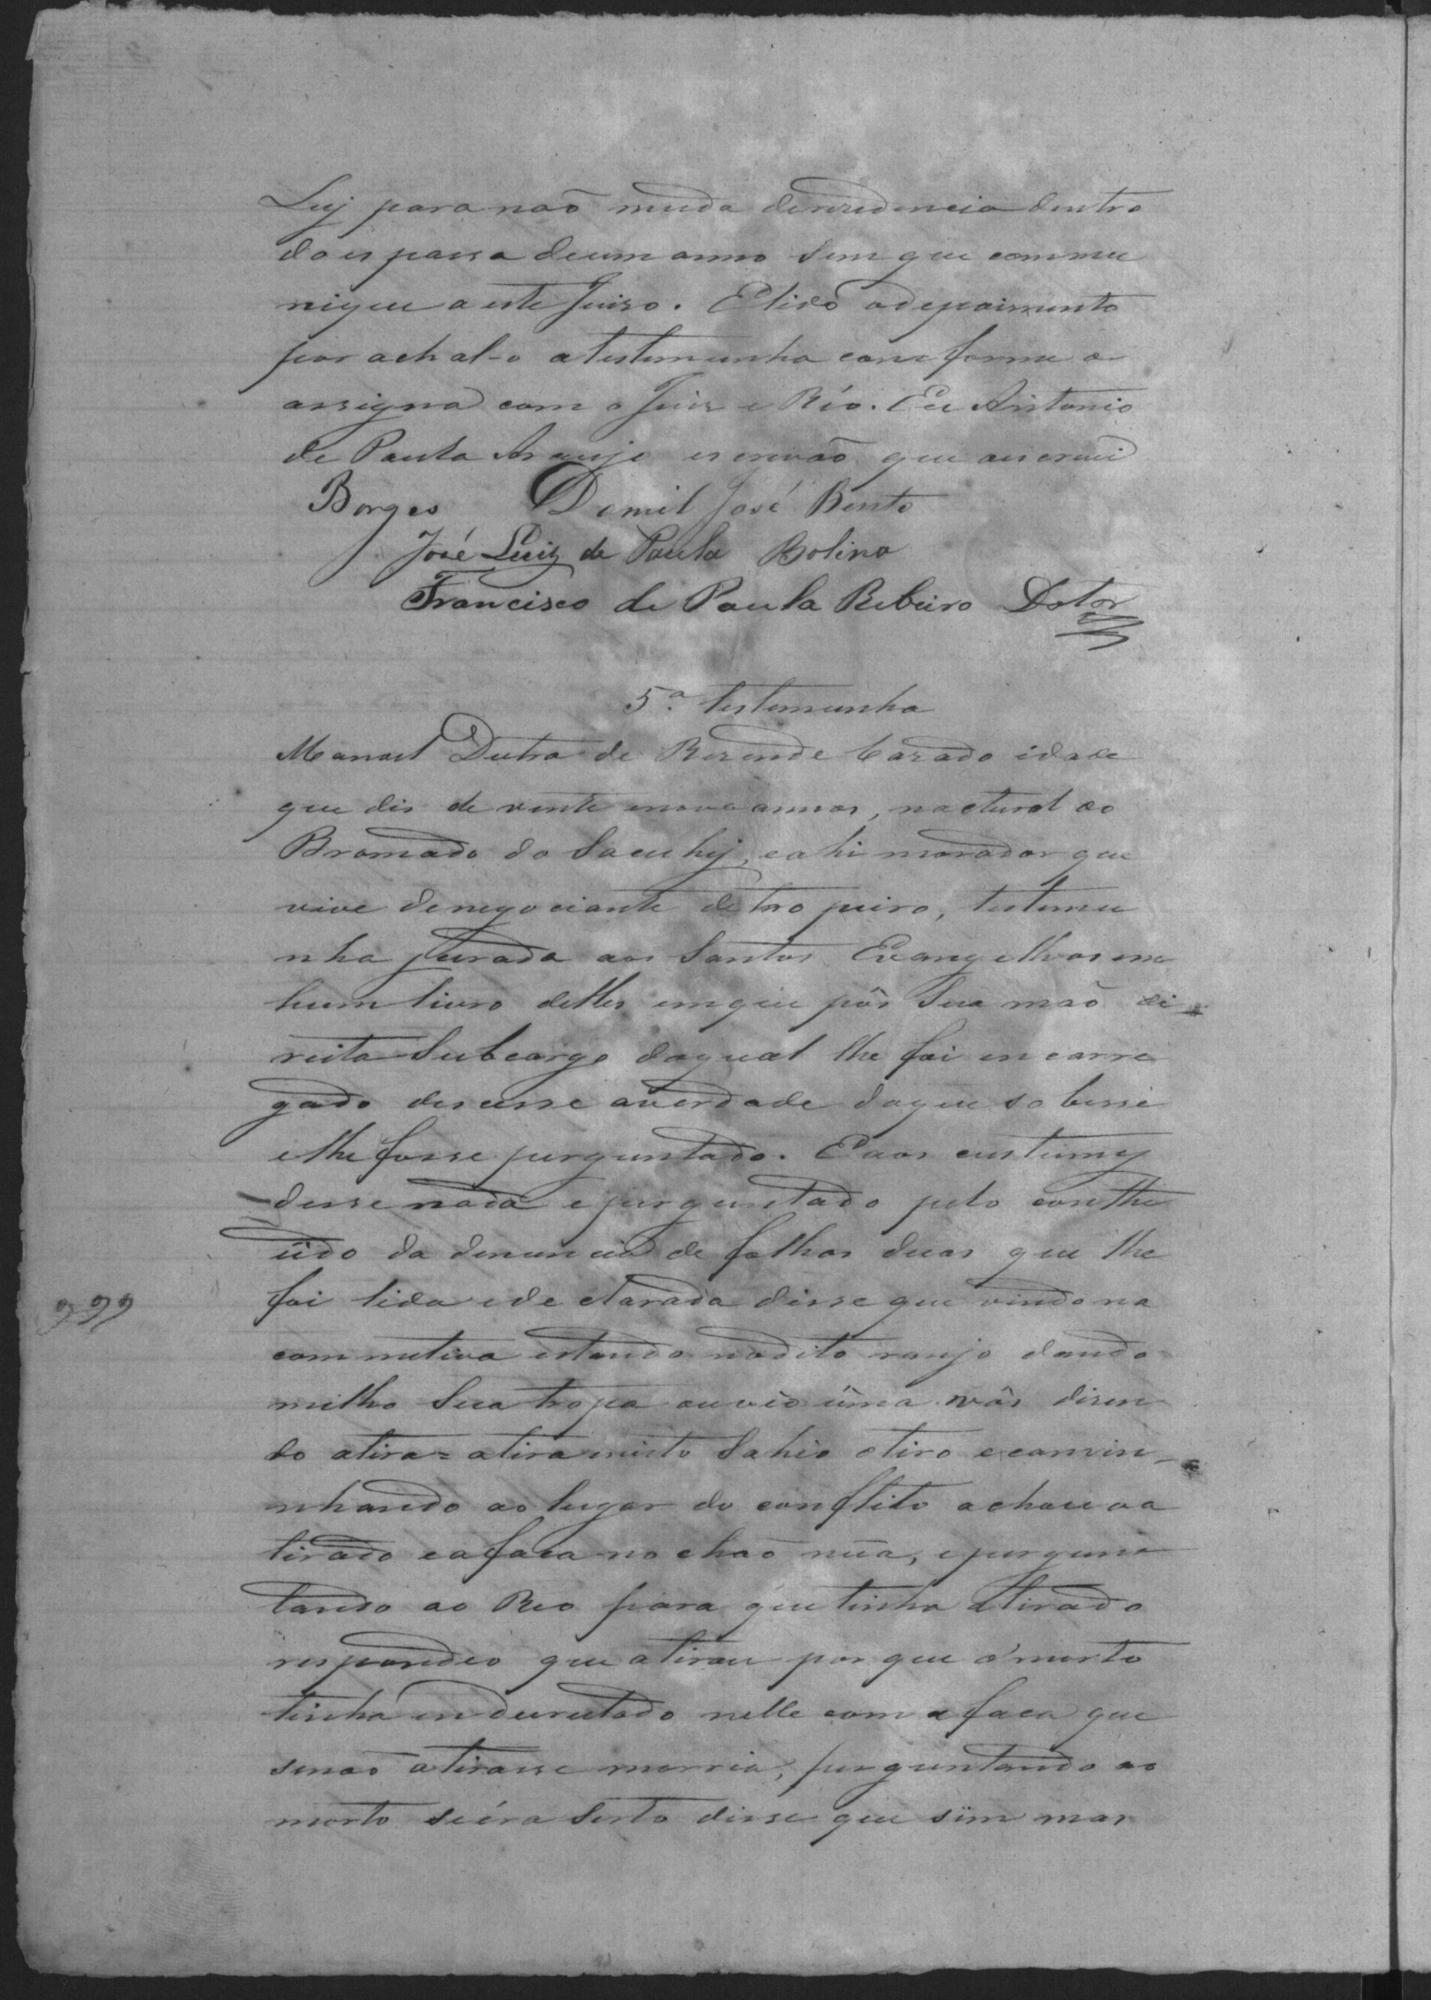 Ley para naõ muda deresidencia dentro
do espasso deumanno sem que commu
nique a este Juiso. E lido odepoimento
por achal-o a testemunha comforme o
assigna com o Juis e Rèo. Eu Antonio
de Paula Araujo escrivaõ que auscrevi
Borges Demil José Bento
José Luiz de Paula Bolina
Francisco de Paula Ribeiro Dotor
5.ª testemunha
Manoel Dutra de Resende Casado idade
que dis de vinte enove annos, nactural do
Bromado do Sacuhy, eahi morador que
vive denegociante de tropeiro, testemu
nha jurada aos Santos Evangelhos em
hum livro delles emque pôs Sua maõ di
reita Subcargo doqual lhe foi encarre
gado dicesse averdade doque sobesse
elhe fosse perguntado. Eaos custumes
disse nada eperguntado pelo conthe
üdo da denuncia de folhas duas que lhe
foi lida ede clarada disse que vindo na
commetiva estando nodito ranjo dando
milho Sua tropa ouvio üma vôs disen
do atira = atira nisto Sahio otiro ecamin
nhando ao lugar do conflito achou oa
tirado eafaca no chaõ nüa, epergun
tando ao Reo para que tinha atirado
respondeo que atirou por que o morto
tinha enduretado nelle com a faca que
senaõ atirasse morria, perguntando ao
morto seéra Serto disse que sim mas